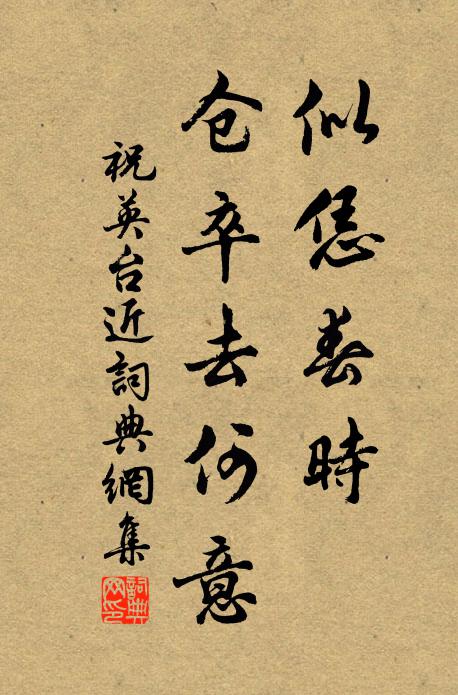 似恁春時
仓卒去何意
祝英台近詞典網集
詞典网印